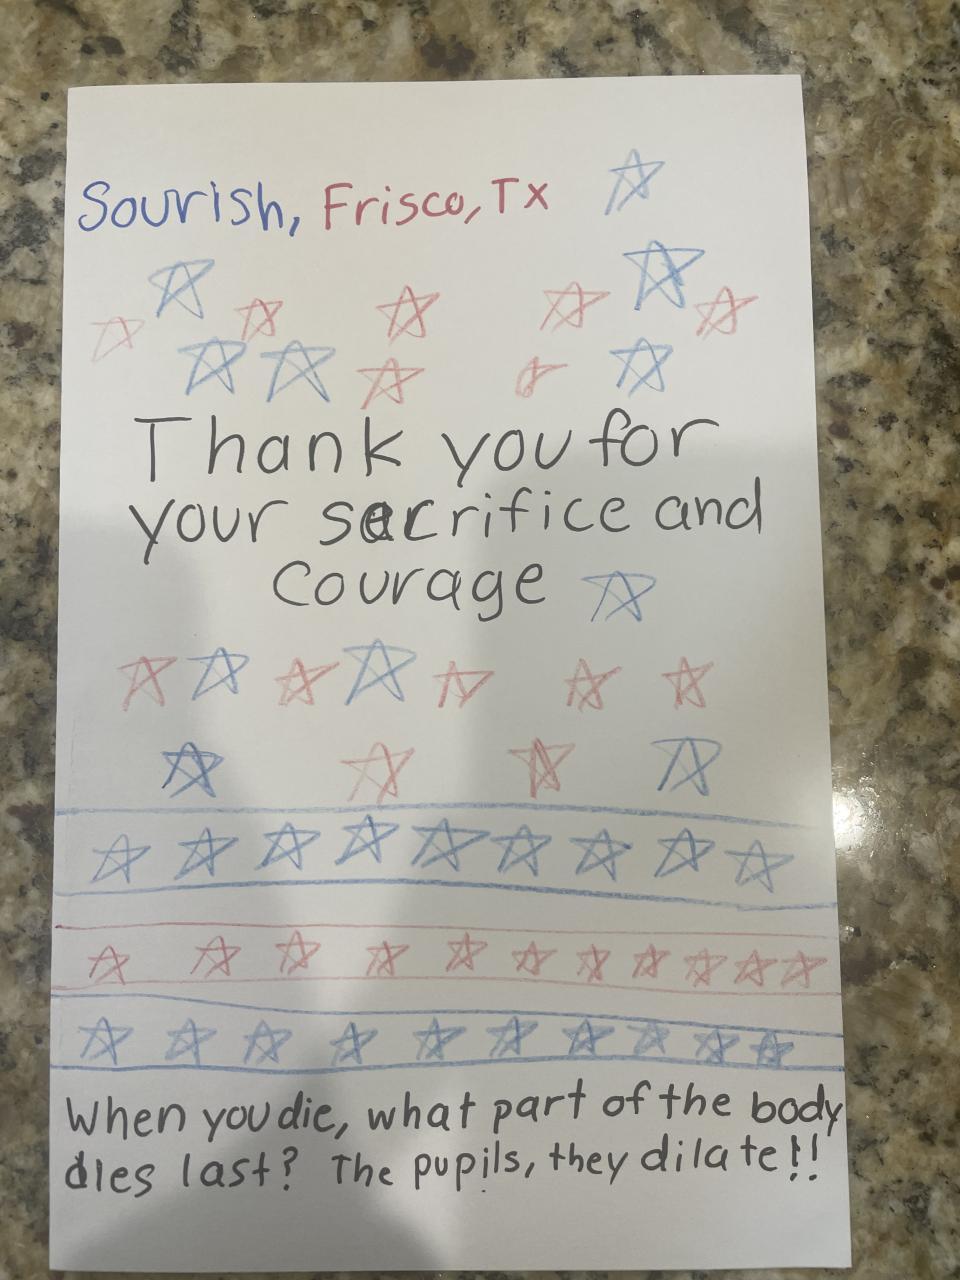 Sourish, Frisco, Tx
Thank you for
your sacrifice and
Courage
When you die, what part of the body
dies last? The pupils, they dilate!!